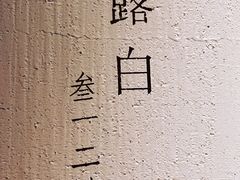 路白
叁一二